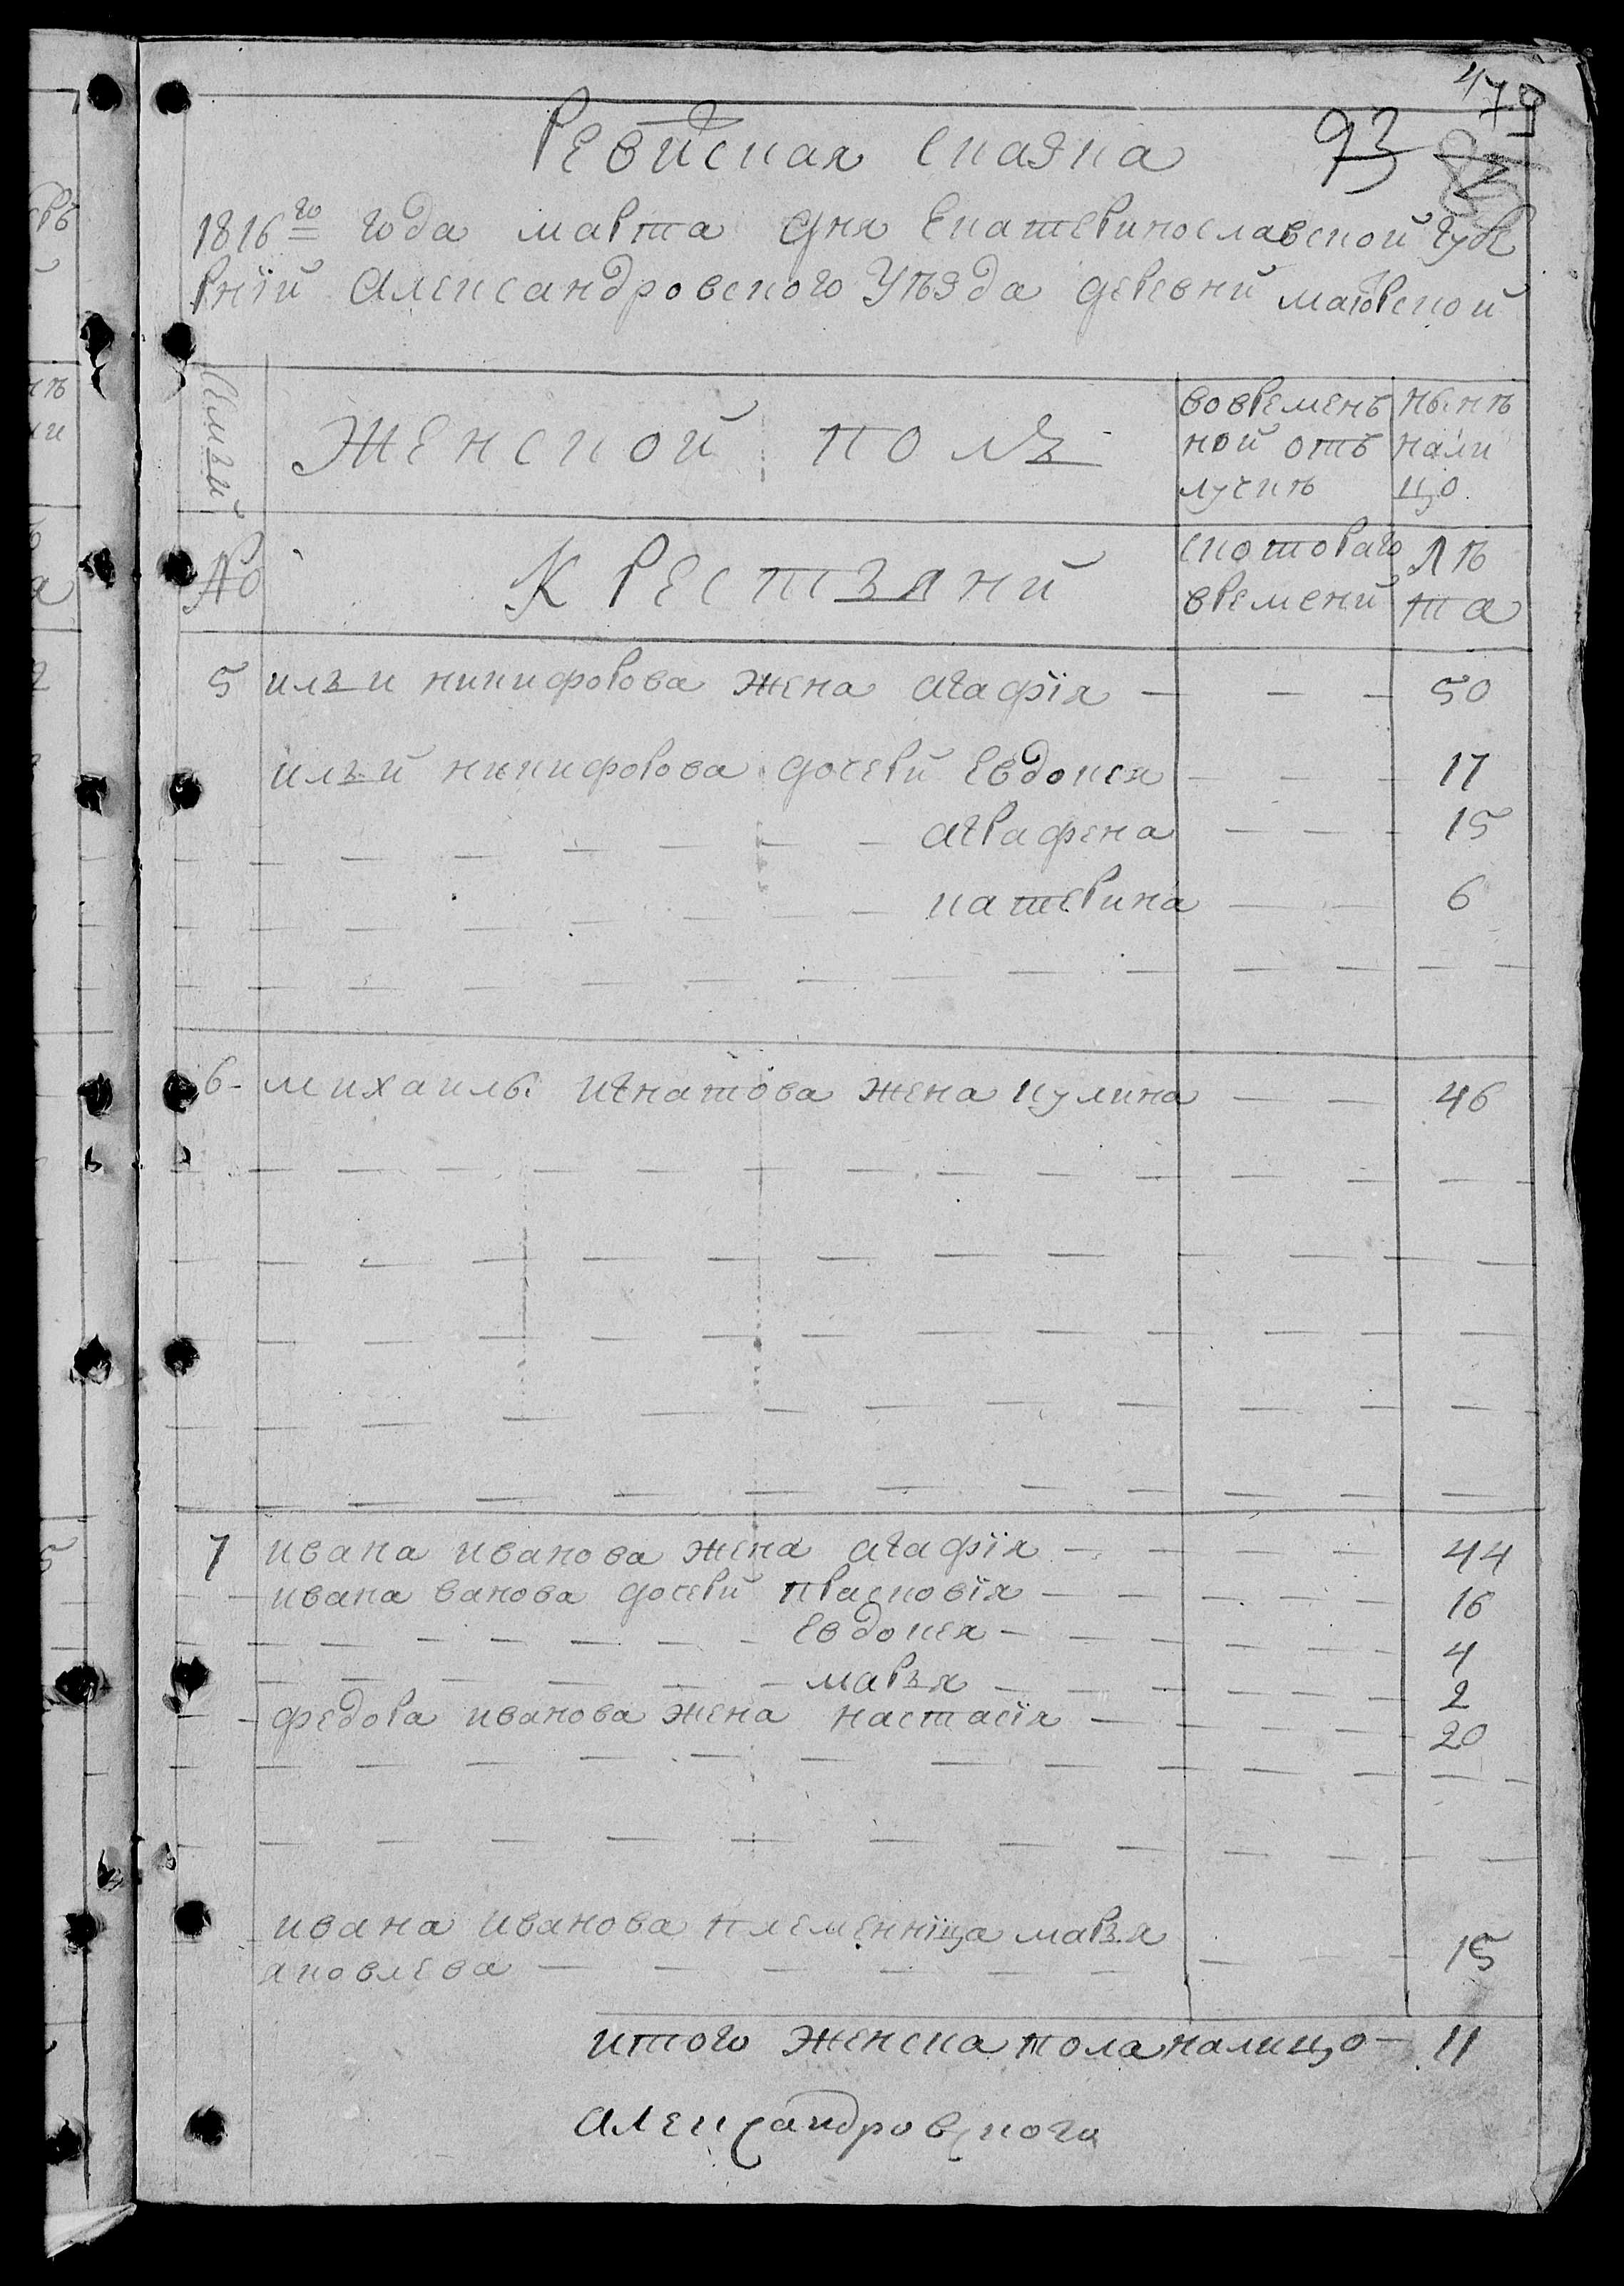 479
93
Ревиская сказка
1816го года марта дня Екатеринославской губе
рнїй Александровского Уѣзда деревни маіорской
Симъй
Женской полъ
вовременъ
ной отъ
лучкѣ
нынѣ
нали
цо
№
Крестьяний
скотораго
времений
лѣ
та
5 ильи никифорова жена агафїя — — — 50
ильй никифорова дочерй Евдокея — — — 17
аграфена — — — 15
катерина — — 6
6 - михаилы игнатова жена кулина — — 46
7 ивана иванова жена агафїя — — — — 44
ивана ванова дочерй прасковїя — — — — 16
Евдокея — — — — 4
марья — — — — 2
федора иванова жена настасїя — — — — 20
ивана иванова племеннїца марья
яковлева — — — — — — — — 15
итого женска пола налицо — 11
Александровского